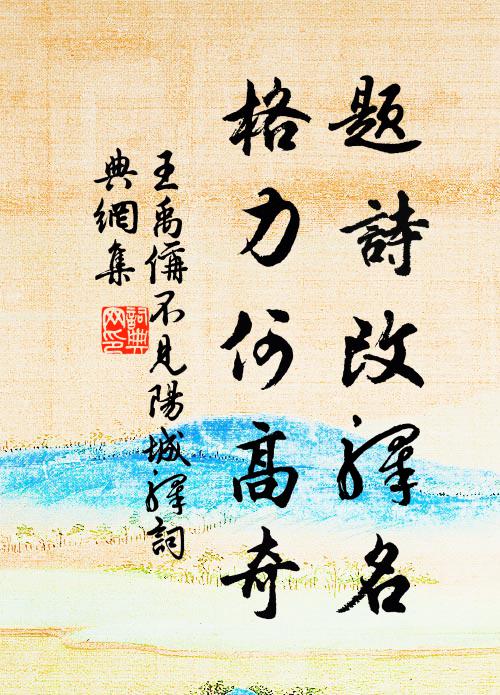 題詩改驛名
格力何高奇
王禹偁不見陽城驛詞
典網集
詞典網印